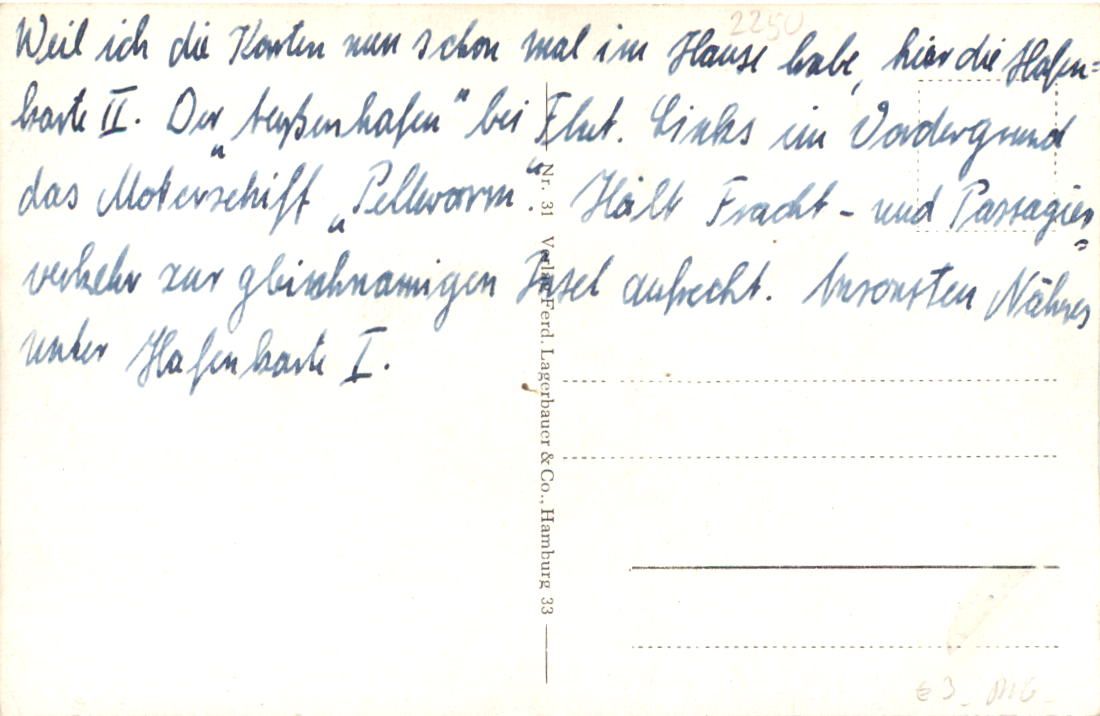 2250
Weil ich die Karten nun schon mal im Hause habe, hier die Hafen=
karte II. Der „Außenhafen" bei Flut. Links im Vordergrund
das Motorschiff „Pellworm". Hält Fracht- und Passagier=
verkehr zur gleichnamigen Insel aufrecht. Ansonsten Nähres
unter Hafenkarte I.
Nr. 31 Verlag Ferd. Lagerbauer & Co., Hamburg 33
€ 3